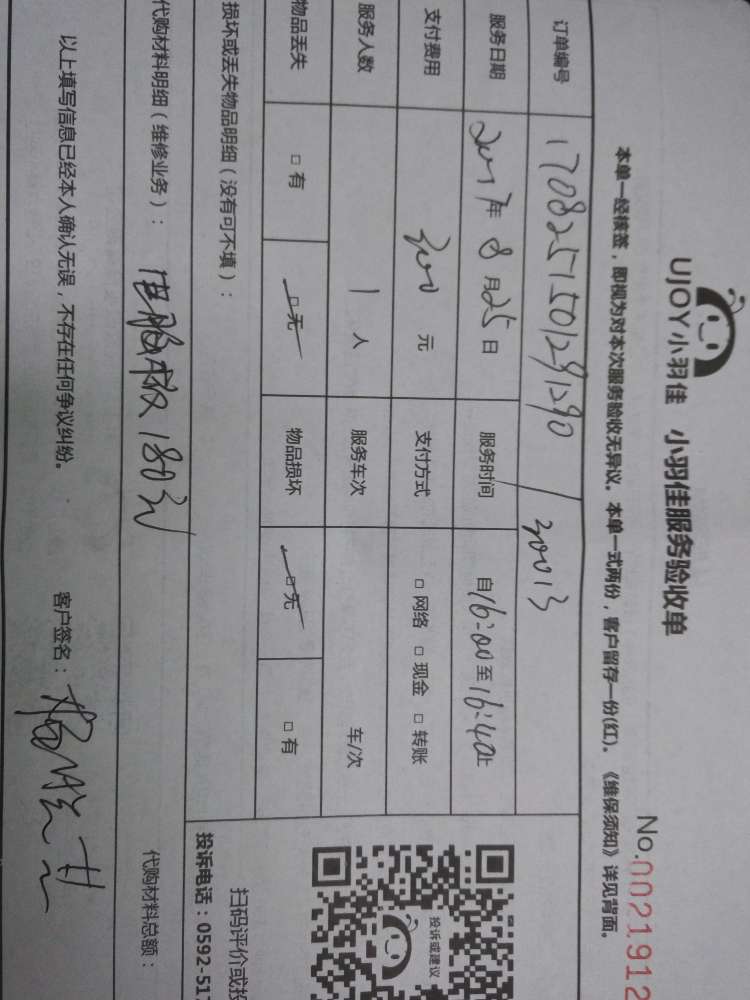 UJOY小羽佳 小羽佳服务验收单
No.0021912
本单一经核签，即视为对本次服务验收无异议。本单一式两份，客户留存一份(红)。《维保须知》详见背面。
订单编号 1708251501291290 / 30013
服务日期 2017年8月25日 服务时间 自16:00至16:40止
支付费用 300元 支付方式 □网络 □现金 □转账
服务人数 1人 服务车次 车/次
物品丢失 □有 □无 物品损坏 □无 □有
损坏或丢失物品明细（没有可不填）：
投诉或建议
扫码评价或投
投诉电话：0592-517
代购材料明细（维修业务）： 电脑板180元
代购材料总额：
以上填写信息已经本人确认无误，不存在任何争议纠纷。 客户签名：